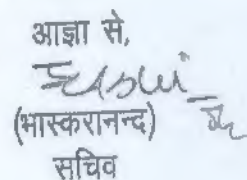 आज्ञा से,
(भास्करानन्द)
सचिव